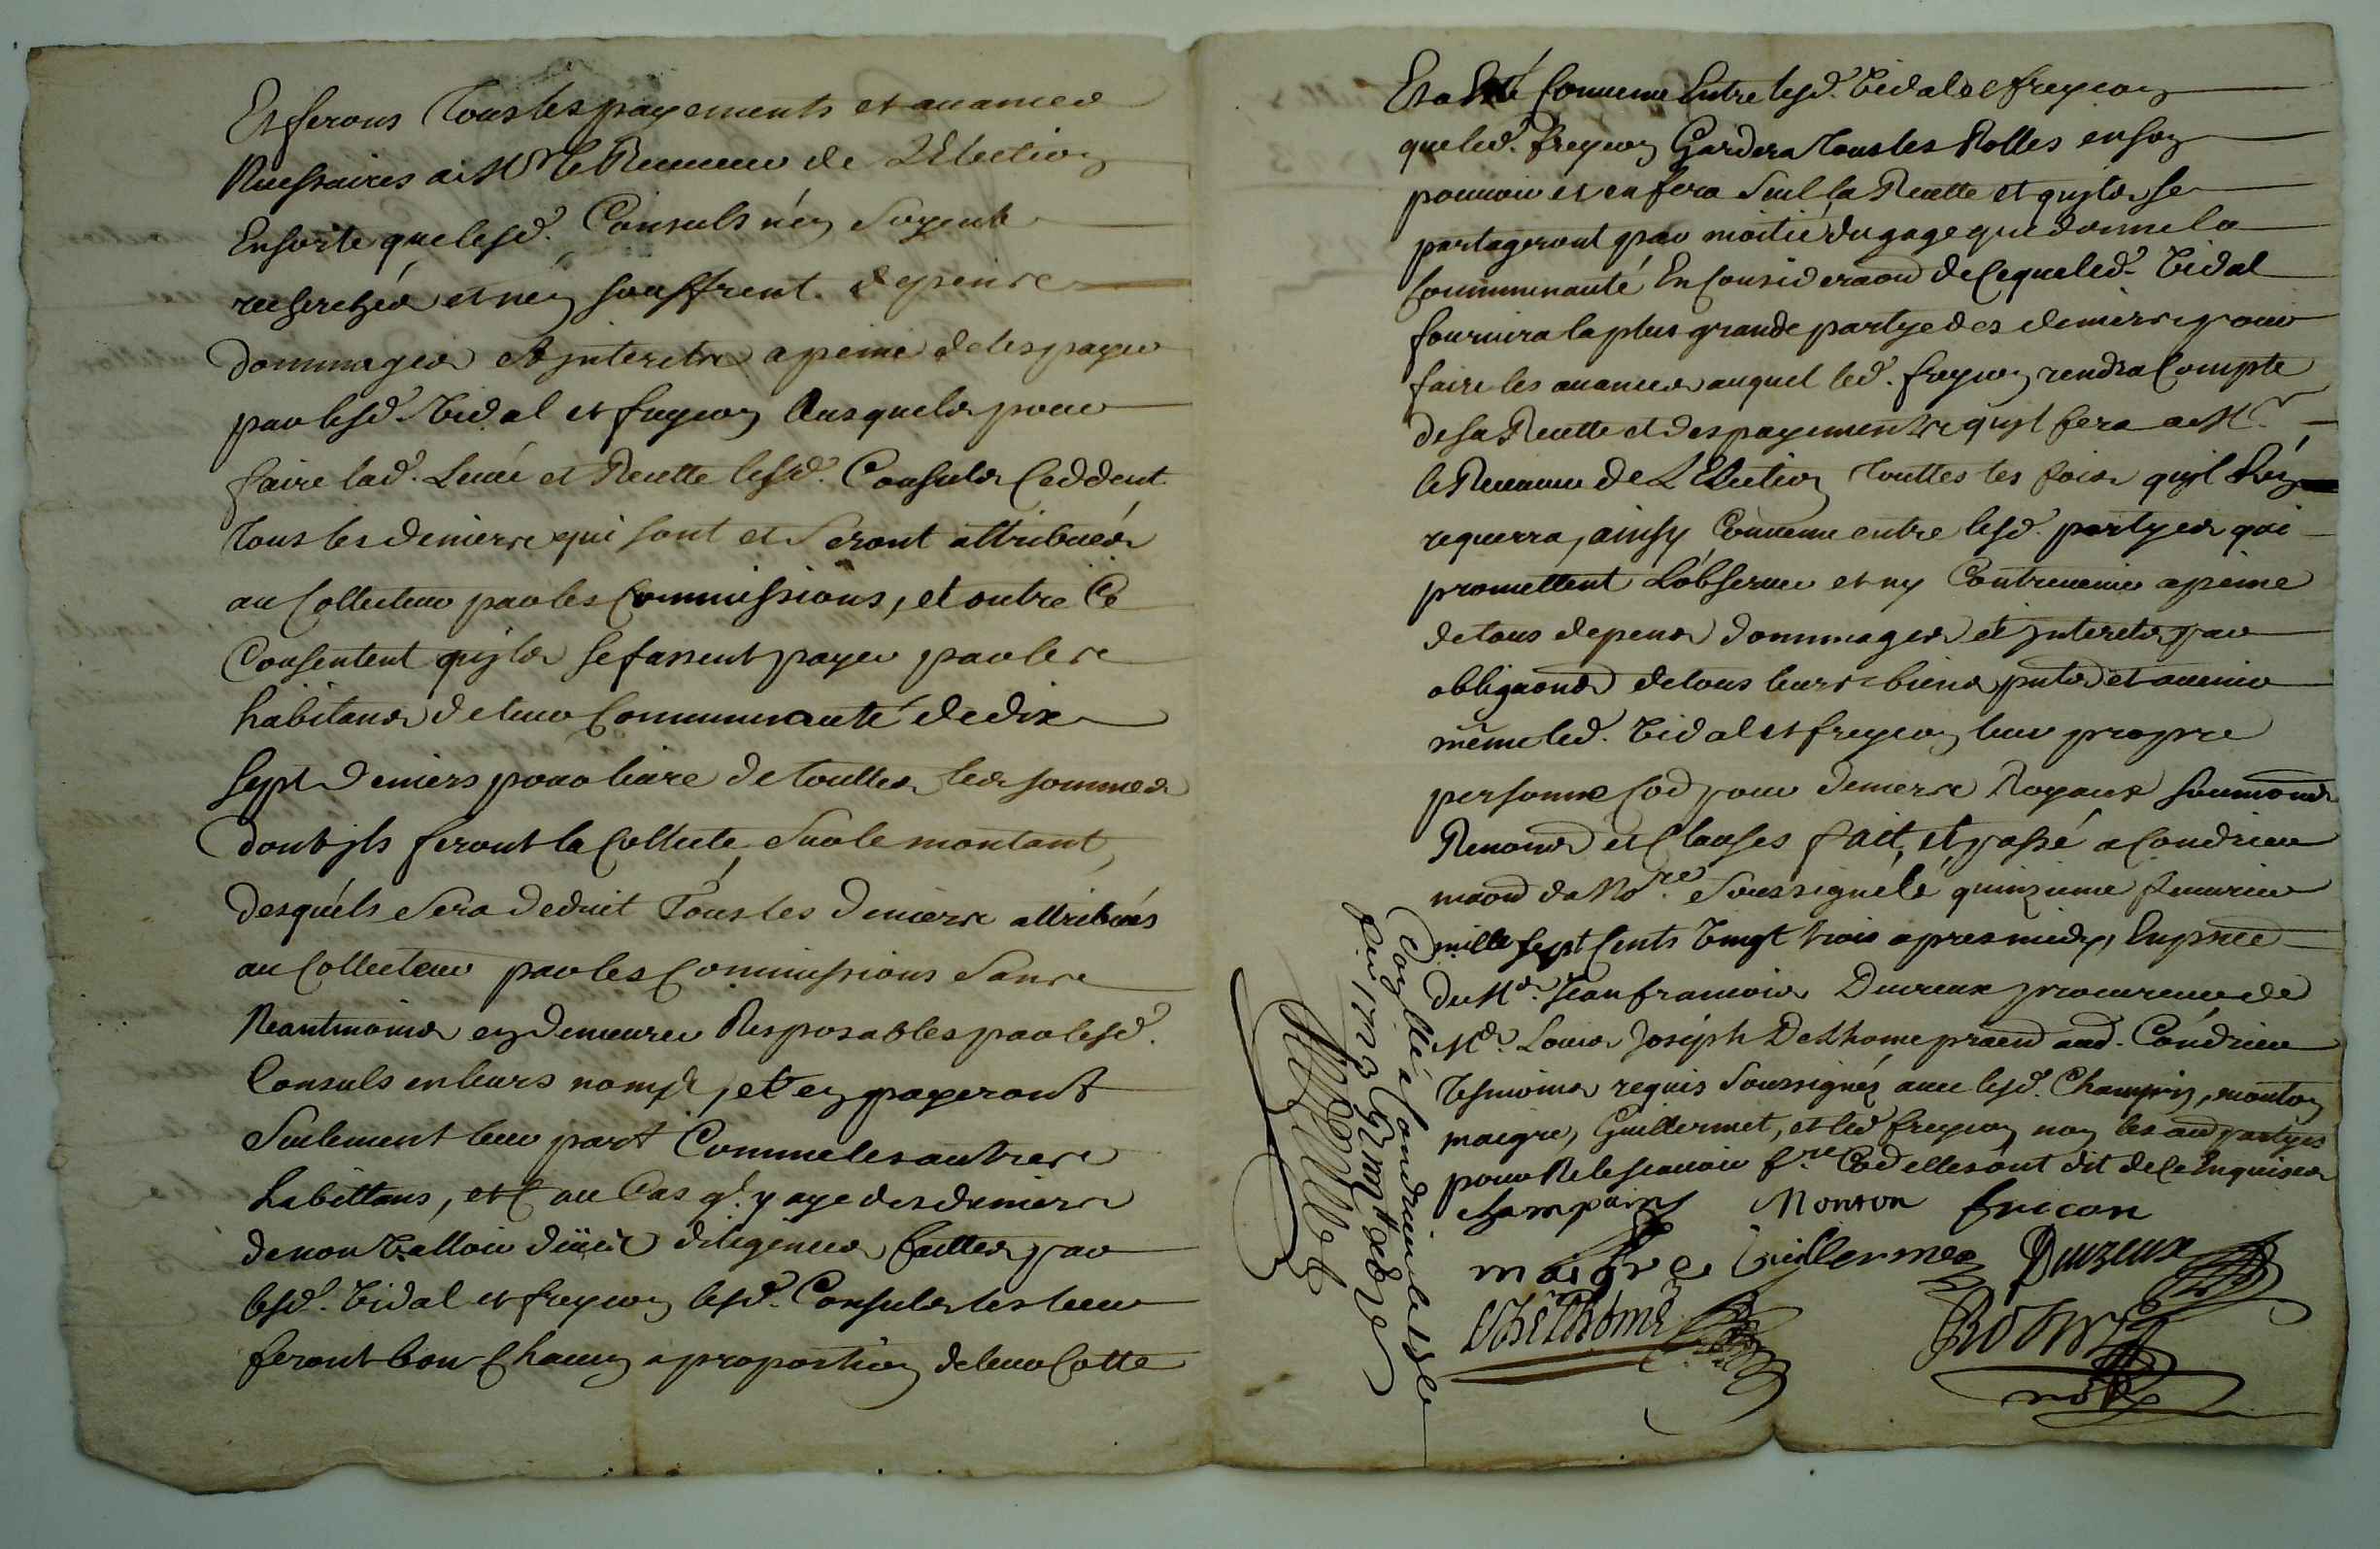 Et feront Tous les payements et auances
Necessaires a Mr le Receueur de L'Election
En sorte que lesd. Consuls n'en Soyent
recherchés et n'en souffrent depens
dommages et jnterets a peine de les payer
par lesd. Vidal et freycon Ausquels pour
faire lad. Leuée et Recette lesd. Consuls Ceddent
Tous les deniers qui sont et Seront attribués
au Collecteur par les Commissions, et outre Ce
Consentent qu'jls se fassent payer par les
habitans de leur Communauté de dix
sept deniers pour liure de touttes les sommes
dont jls feront la Collecte, Sur le montant,
desquels Sera deduit Tous les deniers attribués
au Collecteur par les Commissions Sans
Neantmoins en demeurer Resposables par lesd.
Consuls en leurs noms, et en payeront
Seulement leur part Comme les autres
habittans, et au Cas ql. y aye des deniers
de non Valloir diligences faittes par
lesd. Vidal et freycon lesd. Consuls les leur
feront bon Chacun a proportion de leur Cotte
Et a Esté Conuenu Entre lesd. Vidal et freycon
que led. freycon Gardera tous les Rolles en son
pouuoir et en fera Seul la Recette et qu'jls se
partageront par moitié du gage que donne la
Communauté En Consideraon de Ce que led. Vidal
fournira la plus grande partye des deniers pour
faire les auances auquel led. freycon rendra Compte
de sa Recette et des payements qu'jl fera a Mr
le Receueur de L'Election Touttes les fois qu'jl L'en
requerra, ainsy Conuenu entre lesd. partyes qui
promettent L'obseruer et ny Contreuenir a peine
de tous depens dommages et jnterets par
obligaons de tous leurs biens pnts et auenir
même led. Vidal et freycon leur propre
personne Co. pour deniers Royaux soumons
Renons et Clauses fait et passé a Condrieu
maon du Nore Soussigné le quinzieme feurier
mille sept Cents Vingt trois apres midy, En pnce
de Me. Jean francois Dureux procureur de
Me. Louis Joseph Delhome praen aud. Condrieu
Tesmoins requis Soussignés auec lesd. Champin, monton
maigre, Guillermet, et led freycon non les au partyes
pour ne le scauoir fre Co. elles ont dit de Ce Enquises
champain Monton fricon
maigre Guillermet Dureux
Delhome
nore
Conllé a Condrieu le 15e
feu. 1723